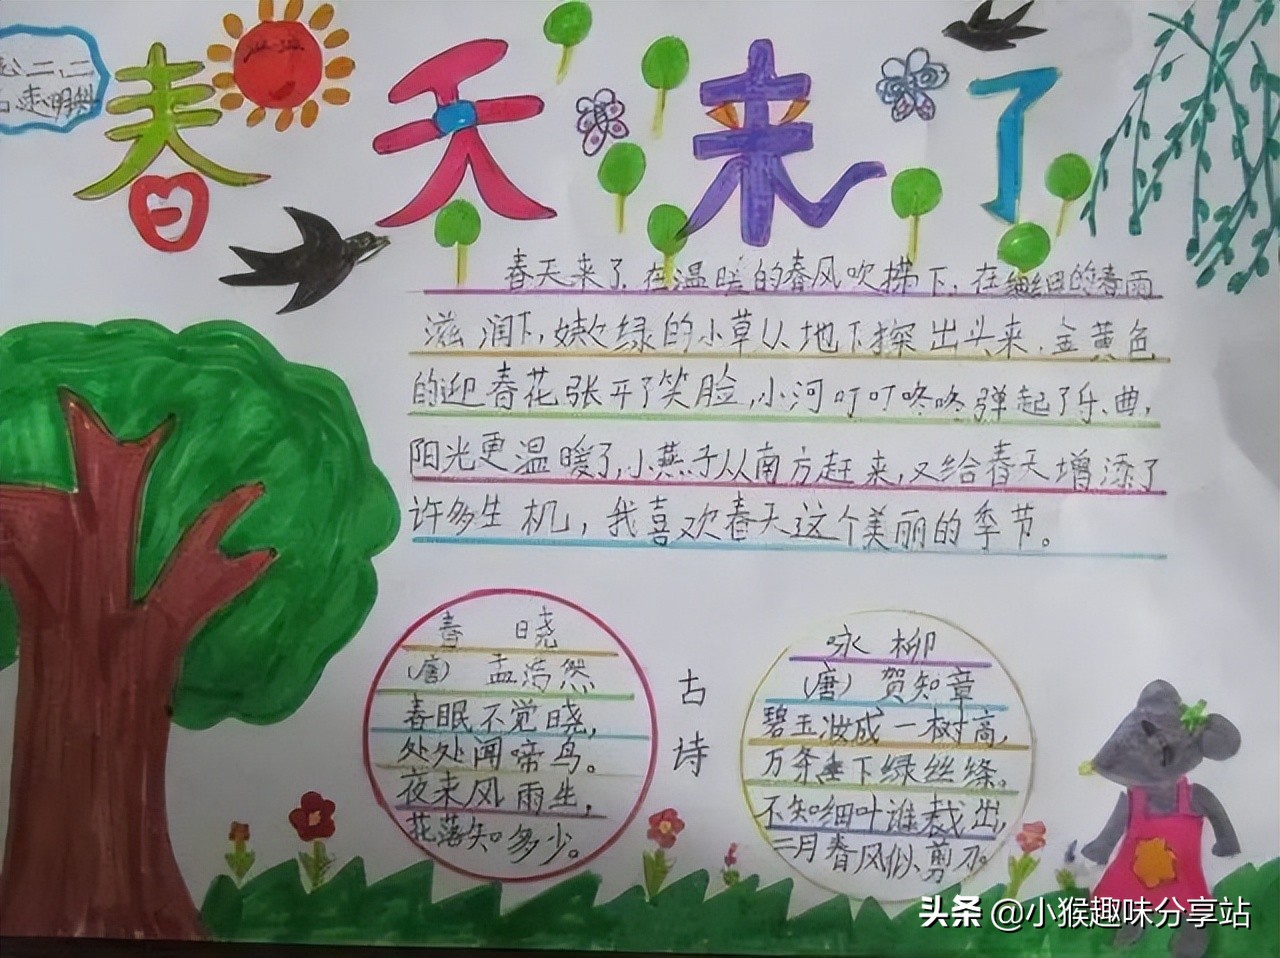 春天来了
春天来了,在温暖的春风吹拂下,在细细的春雨
滋润下,嫩绿的小草从地下探出头来,金黄色
的迎春花张开了笑脸,小河叮叮咚咚弹起了乐曲,
阳光更温暖了,小燕子从南方赶来,又给春天增添了
许多生机,我喜欢春天这个美丽的季节。
春 晓
(唐) 孟浩然
春眠不觉晓,
处处闻啼鸟。
夜来风雨生,
花落知多少。
古诗
咏柳
(唐) 贺知章
碧玉妆成一树高,
万条垂下绿丝绦。
不知细叶谁裁出,
二月春风似剪刀。
头条 @小猴趣味分享站